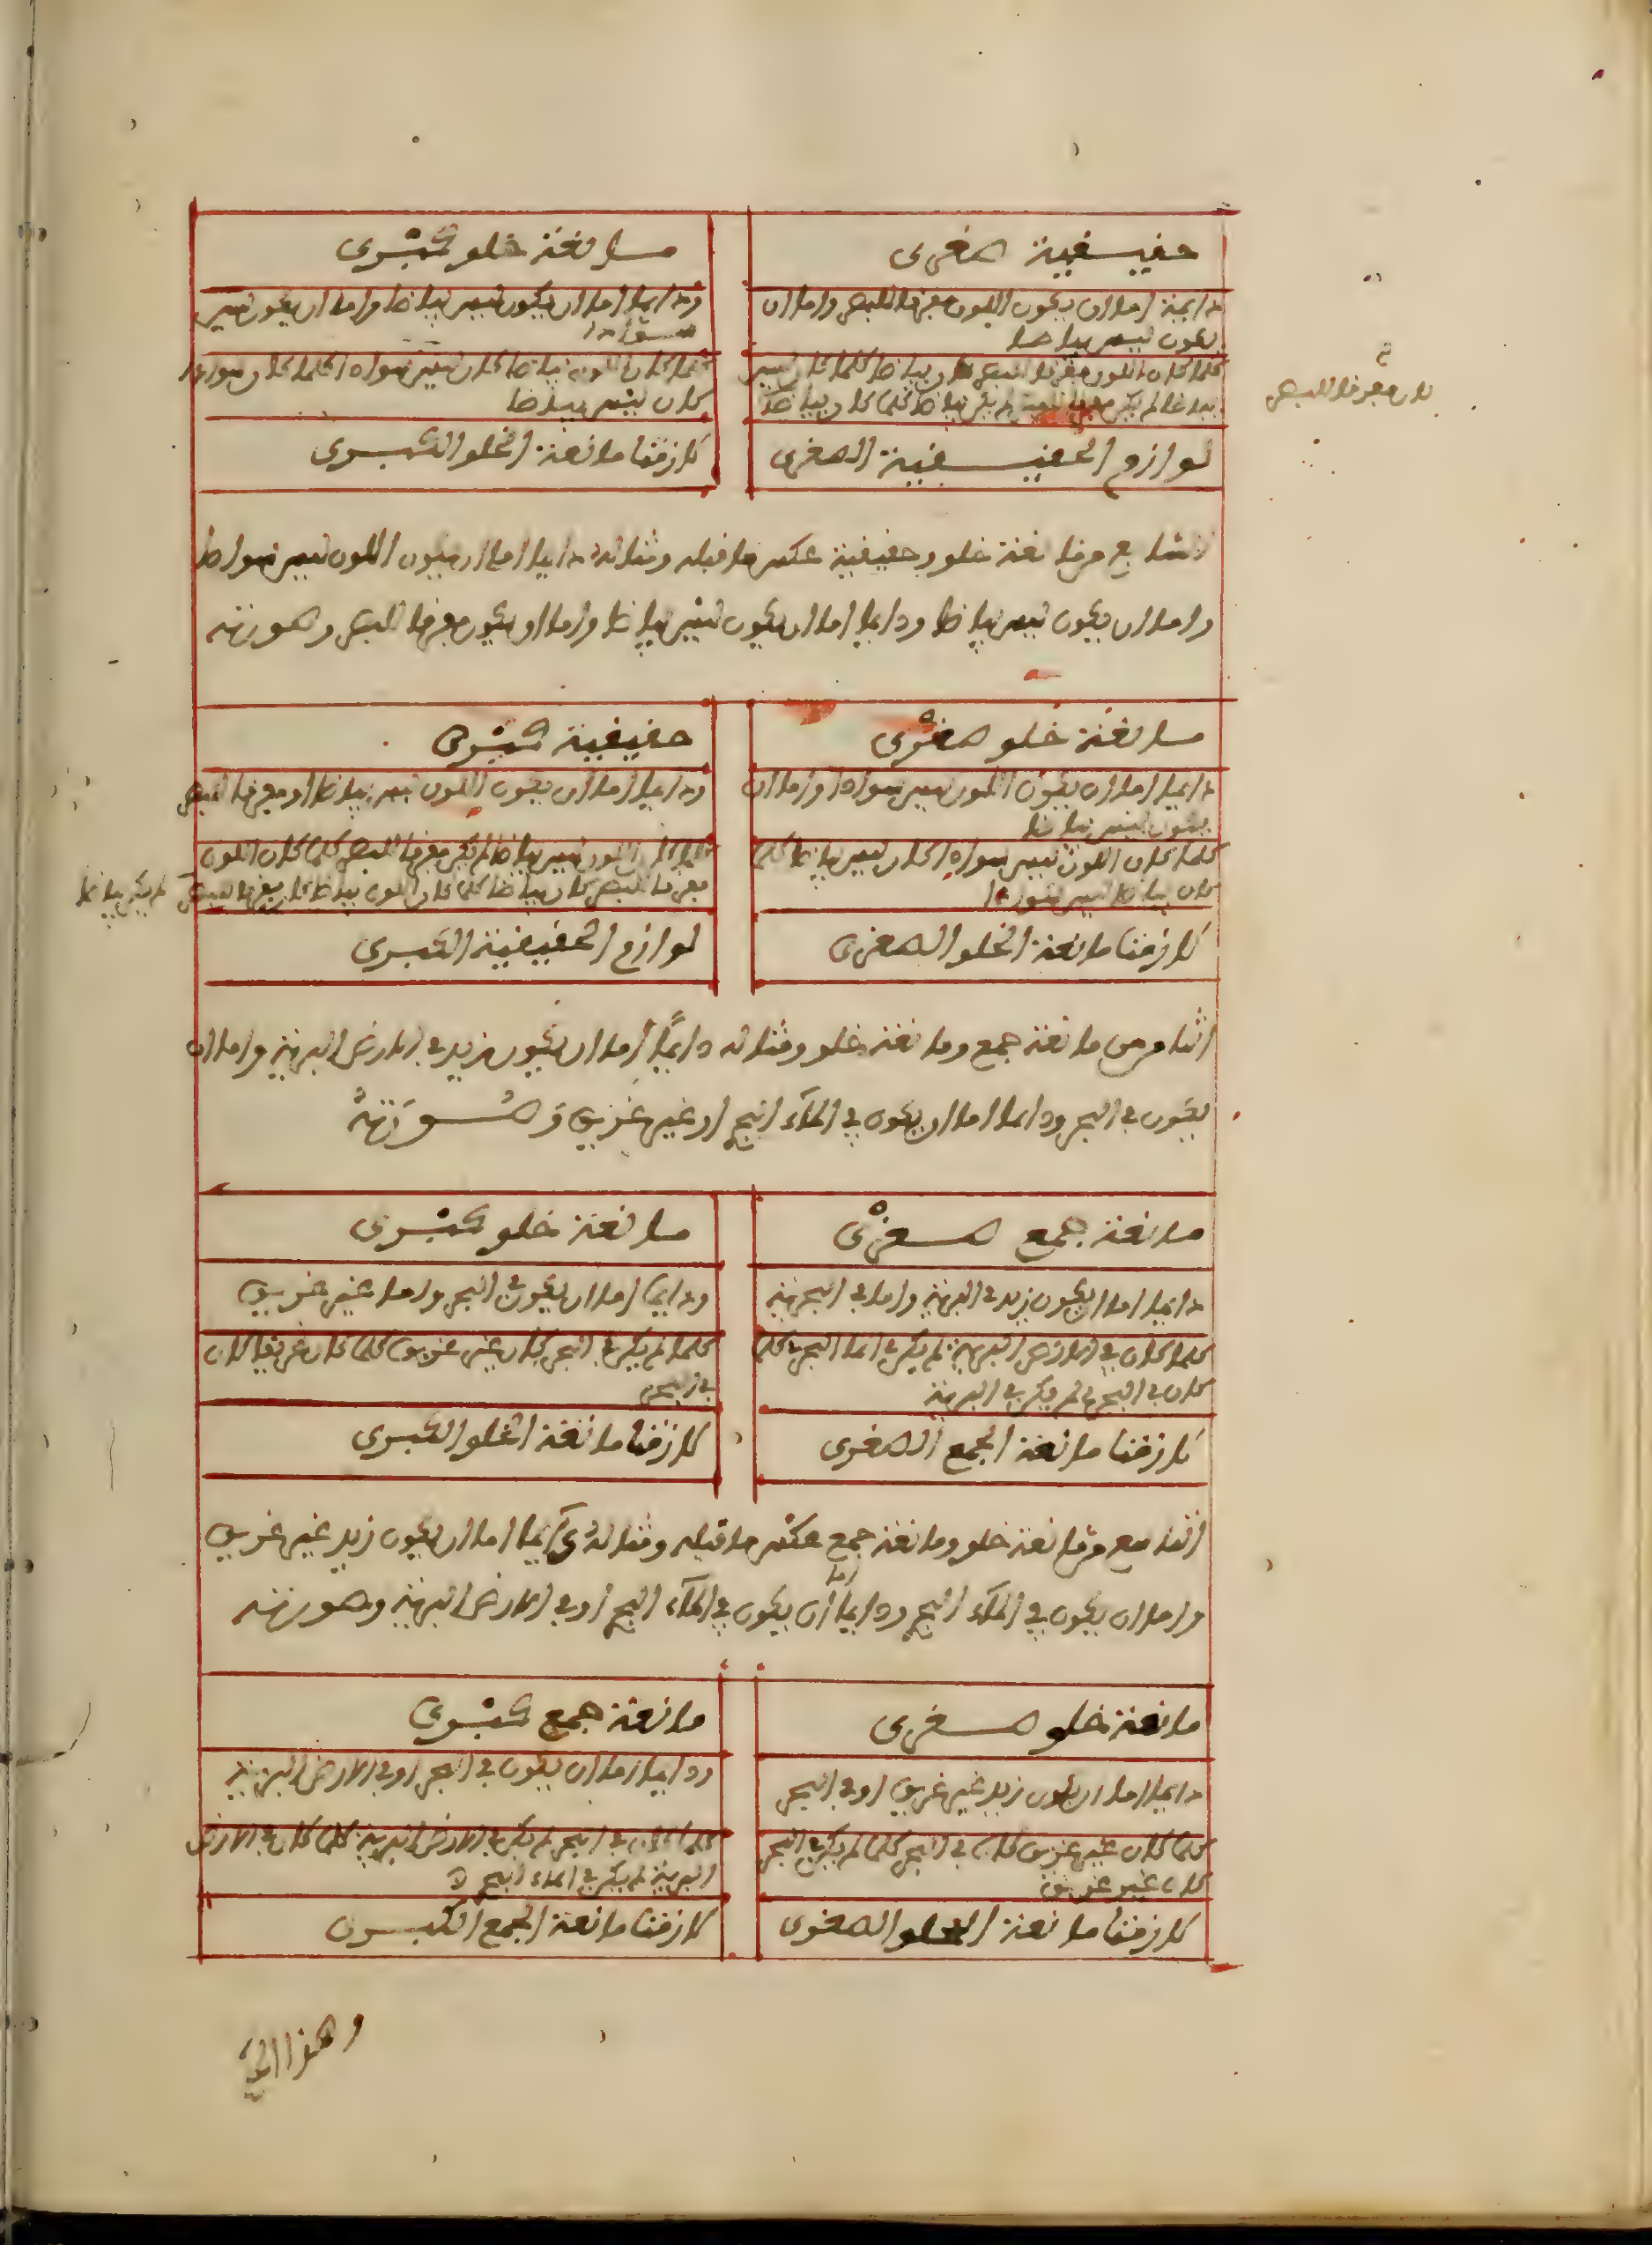 حقيقية صغرى
مانعة خلو كبرى
دايمة اما ان يكون اللون مفرقا للبصر واما ان
يكون ليس بياضا
ودايما اما ان يكون ليس بياضا واما ان يكون ليس
سوادا
كلما كان اللون مفرقا للبصر كان بياضا كلما كان ليس
بياضا لم يكن مفرقا للبصر لم يكن بياضا كلما كان بياضا
كان مفرقا للبصر
كلما كان اللون بياضا كان ليس سوادا كلما كان سوادا
كان ليس بياضا
لوازم الحقيقية الصغرى
لازمتا مانعة الخلو الكبرى
السابع من مانعة خلو وحقيقية عكس ما قبله ومثاله دايما اما ان يكون اللون ليس سوادا
واما ان يكون ليس بياضا ودايما اما ان يكون ليس بياضا واما ان يكون مفرقا للبصر وصورته
مانعة خلو صغرى
حقيقية كبرى
دايما اما ان يكون اللون ليس سوادا واما ان
يكون ليس بياضا
ودايما اما ان يكون اللون ليس بياضا او مفرقا للبصر
كلما كان اللون ليس سوادا كان ليس بياضا كلما
كان بياضا ليس سوادا
كلما كان اللون ليس بياضا لم يكن مفرقا للبصر كلما كان اللون
مفرقا للبصر كان بياضا كلما كان اللون بياضا كان مفرقا للبصر
لم يكن بياضا
لازمتا مانعة الخلو الصغرى
لوازم الحقيقية الكبرى
الثامن من مانعة جمع ومانعة خلو ومثاله دايمًا اما ان يكون زيد في الارض البرية واما ان
يكون في البحر ودايما اما ان يكون في المآء البحر او غير غريق وصورته
مانعة جمع صغرى
مانعة خلو كبرى
دايما اما ان يكون زيد في البرية واما في البحرية
ودايما اما ان يكون في البحر واما غير غريق
كلما كان في الارض البرية لم يكن في الما البحر كلما
كان في البحر لم يكن في البرية
كلما لم يكن في البحر كان غير غريق كلما كان غريقا كان
في البحر
لازمتا مانعة الجمع الصغرى
لازمتا مانعة الخلو الكبرى
التاسع من مانعة خلو ومانعة جمع عكس ما قبله ومثاله دايما اما ان يكون زيد غير غريق
واما ان يكون في المآء البحر ودايما اما ان يكون في المآء البحر او في الارض البرية وصورته
مانعة خلو صغرى
مانعة جمع كبرى
دايما اما ان يكون زيد غير غريق او في البحر
ودايما اما ان يكون في البحر او في الارض البرية
كلما كان غير غريق كان في البحر كلما لم يكن في البحر
كان غير غريق
كلما كان في البحر لم يكن في الارض البرية كلما كان في الارض
البرية لم يكن في الماء البحر
لازمتا مانعة الخلو الصغرى
لازمتا مانعة الجمع الكبرى
وهذا